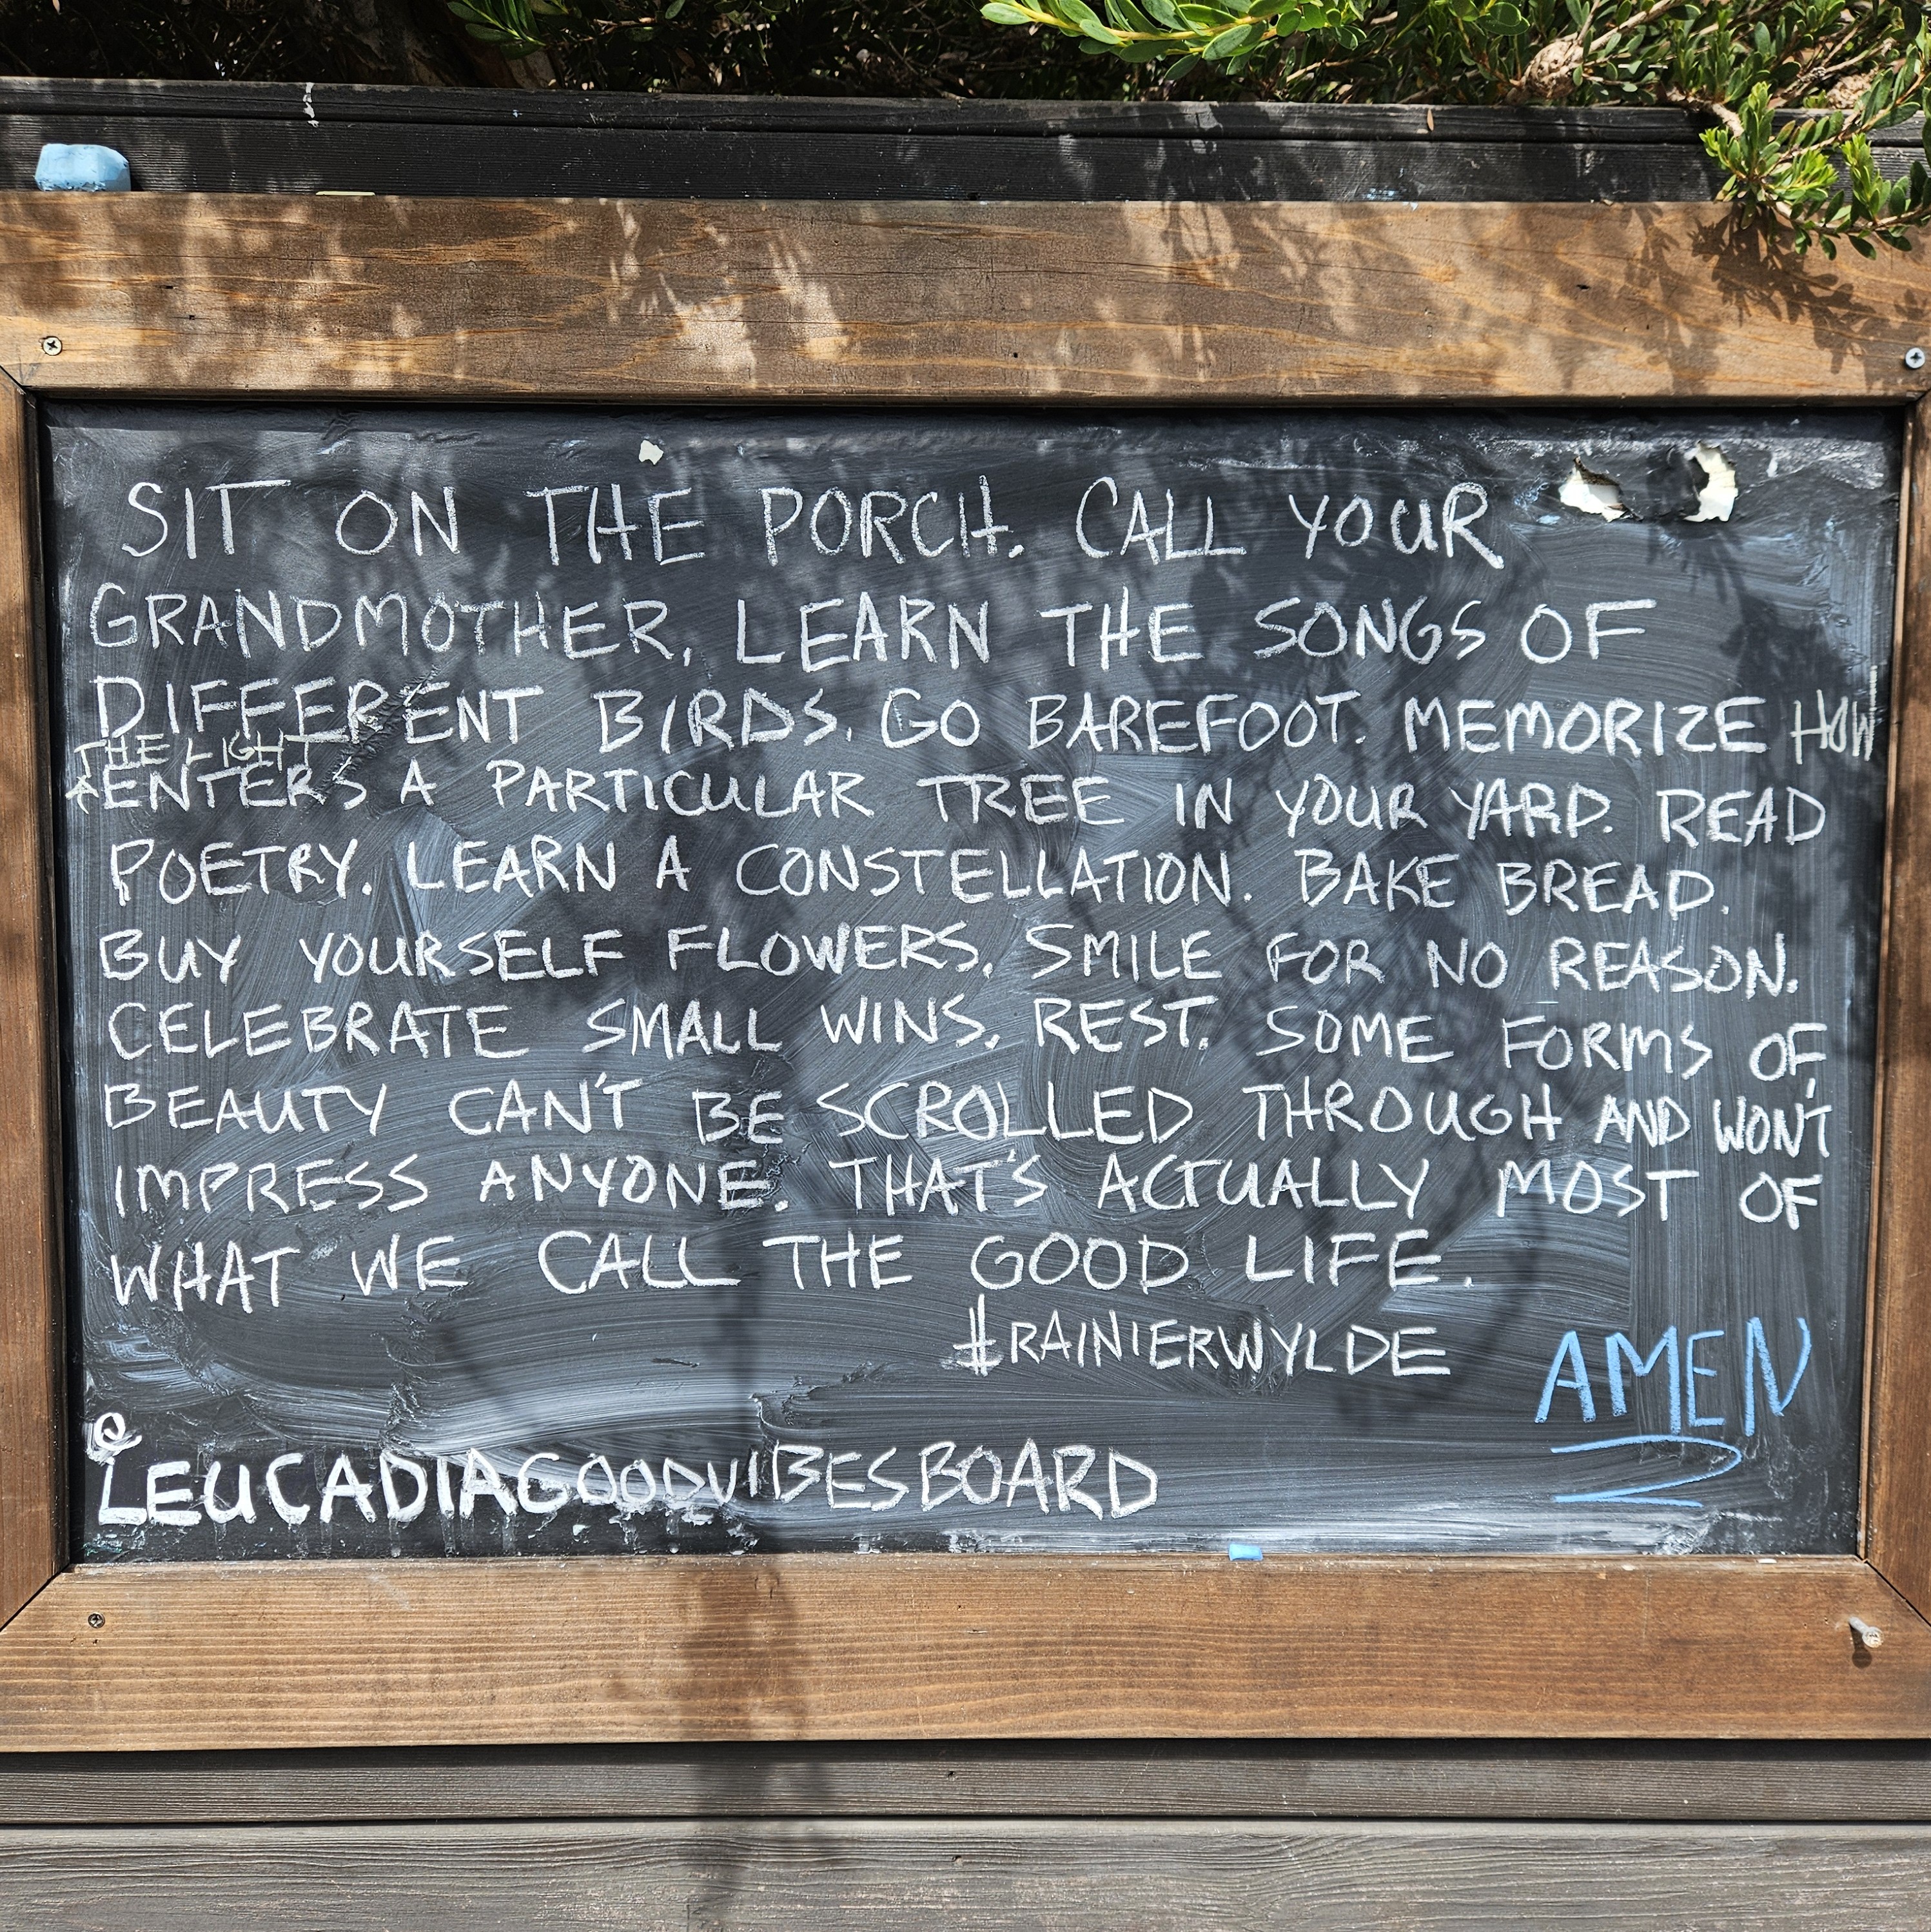 SIT ON THE PORCH. CALL YOUR
GRANDMOTHER, LEARN THE SONGS OF
DIFFERENT BIRDS. GO BAREFOOT. MEMORIZE HOW
THE LIGHT
ENTERS A PARTICULAR TREE IN YOUR YARD. READ
POETRY. LEARN A CONSTELLATION. BAKE BREAD.
BUY YOURSELF FLOWERS. SMILE FOR NO REASON.
CELEBRATE SMALL WINS. REST. SOME FORMS OF
BEAUTY CAN'T BE SCROLLED THROUGH AND WON'T
IMPRESS ANYONE. THAT'S ACTUALLY MOST OF
WHAT WE CALL THE GOOD LIFE.
#RAINIERWYLDE
AMEN
@
LEUCADIAGOODVIBESBOARD